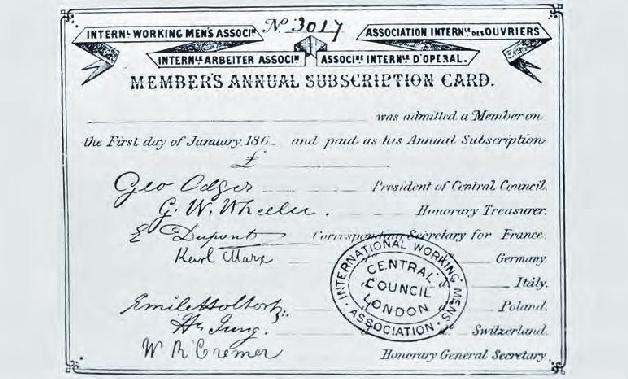 INTERNL WORKING MEN'S ASSOCIN No 3017 ASSOCIATION INTERNLE DES OUVRIERS
INTERNLE ARBEITER ASSOCIN ASSOCINE INTERNLE D'OPERAI.
MEMBER'S ANNUAL SUBSCRIPTION CARD.
was admitted a Member on
the First day of January, 186 and paid as his Annual Subscription
£
Geo Odger President of Central Council.
G. W. Wheeler. Honorary Treasurer.
E Dupont Corresponding Secretary for France.
Karl Marx Germany
d. Italy.
Emile Holtorp Poland.
H. Jung. d. Switzerland.
W R Cremer Honorary General Secretary
INTERNATIONAL WORKING MENS ASSOCIATION
CENTRAL
COUNCIL
LONDON